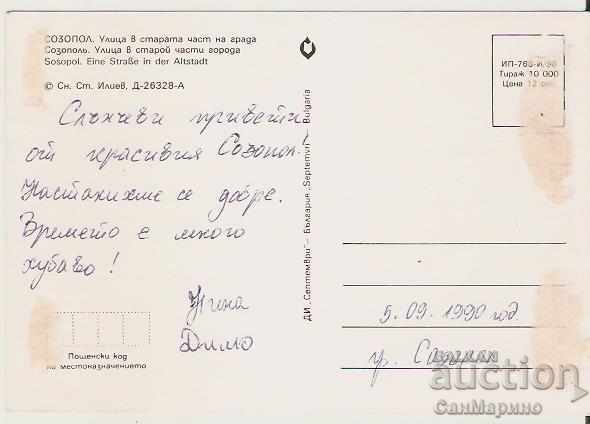 СОЗОПОЛ. Улица в старата част на града
Созополь. Улица в старой части города
Sosopol. Eine Straße in der Altstadt
© Сн. Ст. Илиев, Д-26328-А
Слънчеви привети
от красивия Созопол!
Настанихме се добре.
Времето е много
хубаво!
Нина
Димо
Пощенски код
на местоназначението
ДИ „Септември" – България „Septemvri" Bulgaria
Тираж 10 000
Цена 12
5.09.1990 год.
гр. Созопол
auction
СанМарино